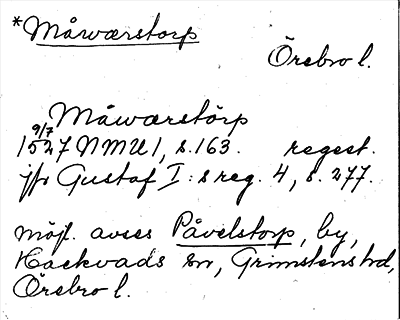 *Måwærstorp
Örebro l.
Måwærstörp
9/7
1527 NMU 1, s. 163. regest.
jfr Gustaf I:s reg. 4, s. 277.
möjl. avses Påvelstorp, by,
Hackvads sn, Grimstens hd,
Örebro l.